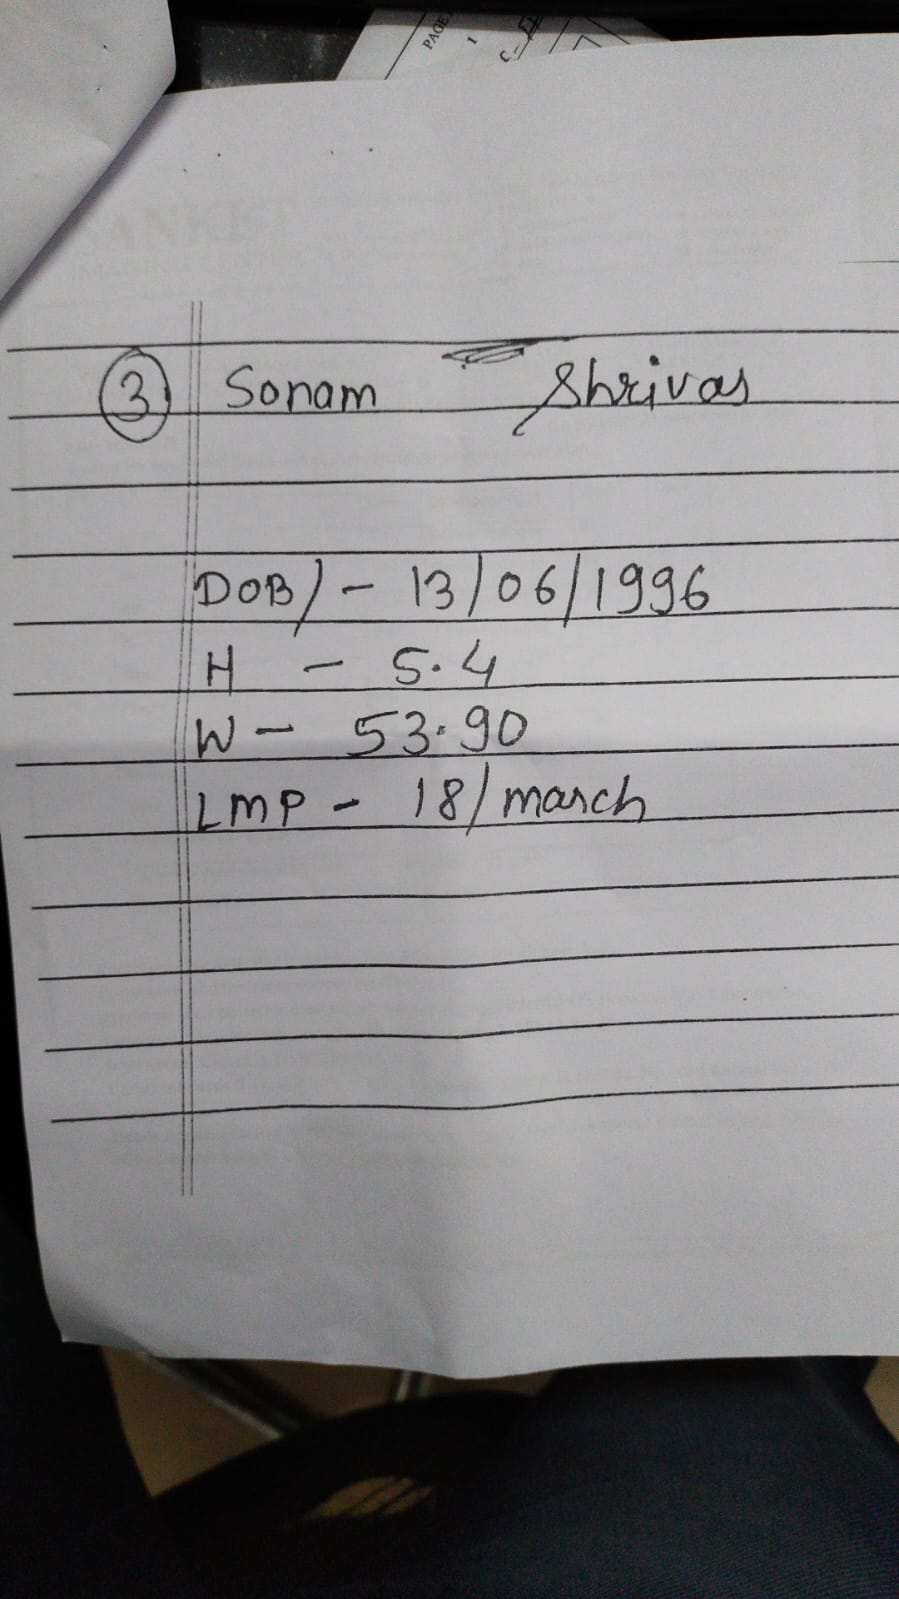 PAGE
1
③ Sonam Shrivas
DOB/- 13/06/1996
H - 5.4
W - 53.90
LMP - 18/march